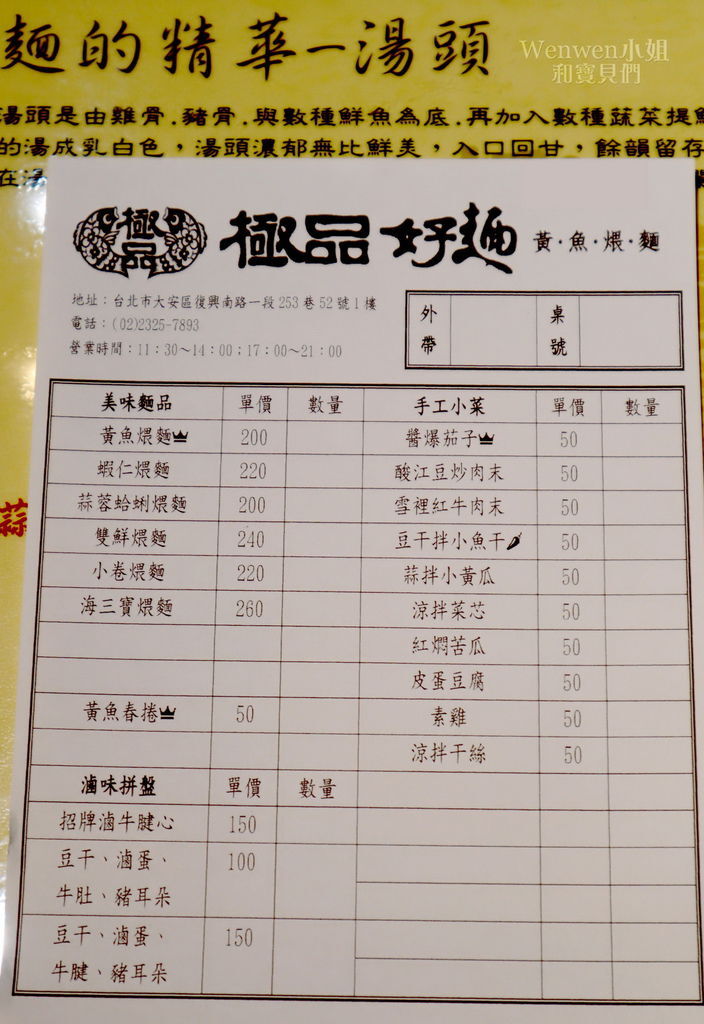 麵的精華－湯頭
Wenwen小姐
和寶貝們
湯頭是由雞骨.豬骨.與數種鮮魚為底.再加入數種蔬菜提
的湯成乳白色，湯頭濃郁無比鮮美，入口回甘，餘韻留存
在
極品
極品 好麵 黃·魚·煨·麵
地址：台北市大安區復興南路一段253巷52號1樓
電話：(02)2325-7893
營業時間：11：30～14：00；17：00～21：00
外帶 桌號
美味麵品 單價 數量 手工小菜 單價 數量
黃魚煨麵 200 醬爆茄子 50
蝦仁煨麵 220 酸江豆炒肉末 50
蒜蓉蛤蜊煨麵 200 雪裡紅牛肉末 50
雙鮮煨麵 240 豆干拌小魚干 50
小卷煨麵 220 蒜拌小黃瓜 50
海三寶煨麵 260 涼拌菜芯 50
紅燜苦瓜 50
皮蛋豆腐 50
黃魚春捲 50 素雞 50
涼拌干絲 50
滷味拼盤 單價 數量
招牌滷牛腱心 150
豆干、滷蛋、 100
牛肚、豬耳朵
豆干、滷蛋、 150
牛腱、豬耳朵
蒜